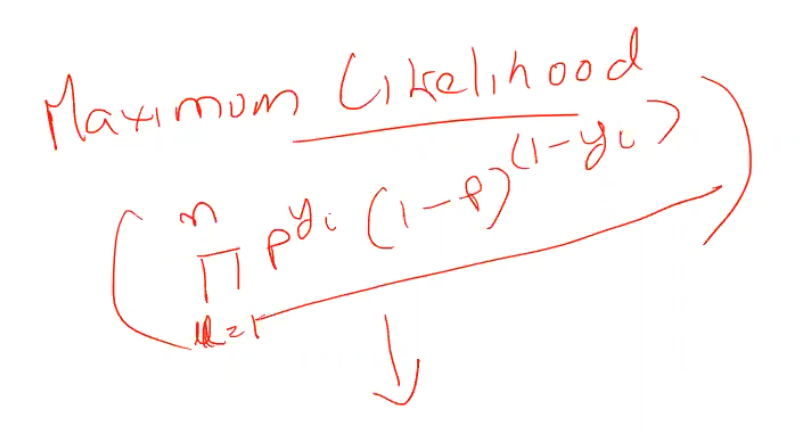 Maximum Likelihood
( ∏_{i=1}^{n} p^{y_i} (1-p)^{(1-y_i)} )